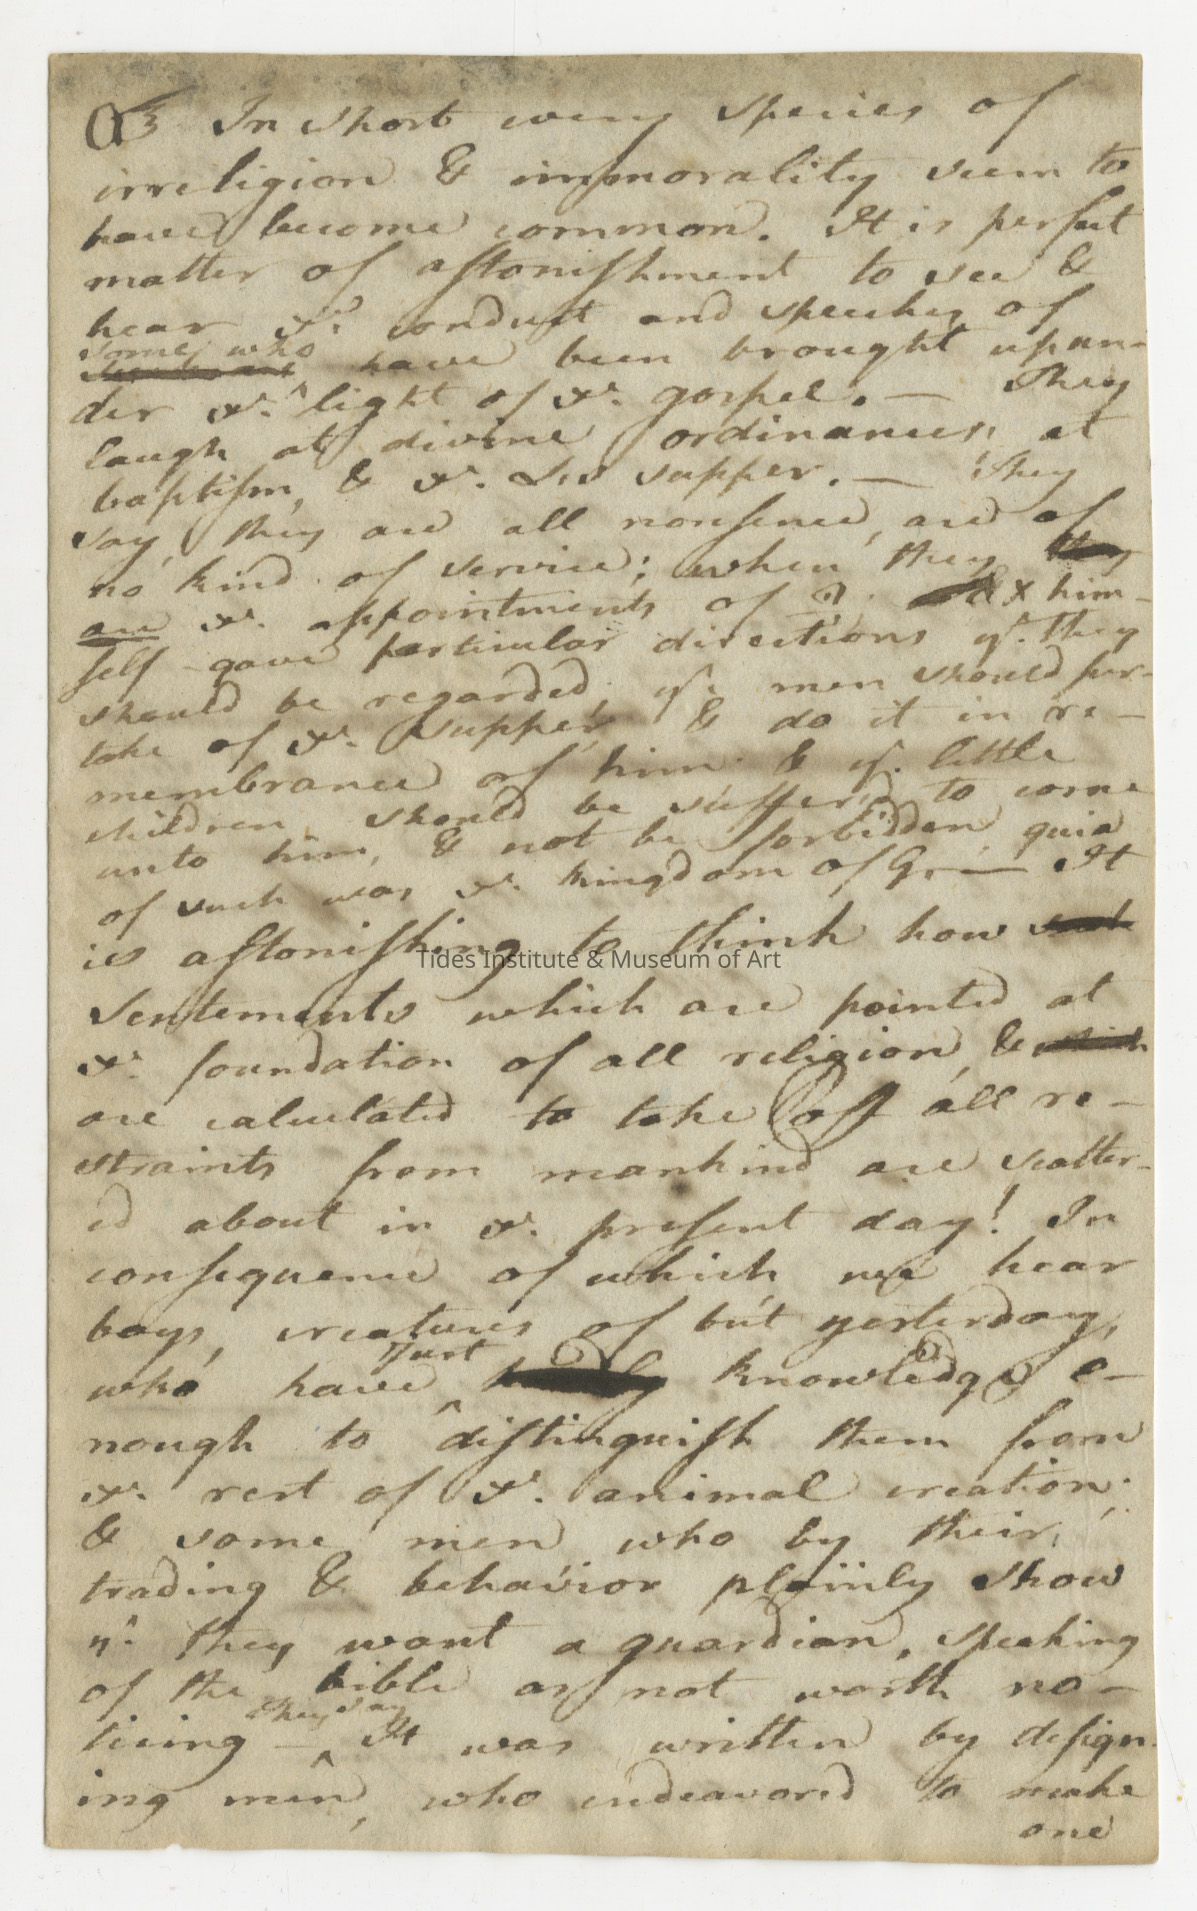 In short every species of
irreligion & immorality seem to
have become common. It is perfect
matter of astonishment to see &
hear ye. conduct and speeches of
some who
have been brought up un-
der ye. light of ye. gospel. — They
laugh at divine ordinances, at
baptism, & ye. Lds supper. — They
say, they are all nonsense, are of
no kind of service; when they they
are ye. appointments of X him-
self gave particular directions yt. they
should be regarded; yt. men should par-
take of ye. supper & do it in re-
membrance of him & yt. little
children should be suffered to come
unto him, & not be forbidden, quia
of such was ye. kingdom of G. — It
is astonishing to think how such
Sentements which are pointed at
ye. foundation of all religion, & which
are calculated to take off all re-
straints from mankind are scatter-
ed about in ye. present day! In
consequence of which we hear
boys, creatures of but yesterday,
just
who have ^ hardly knowledge e-
nough to distinguish them from
ye. rest of ye. animal creation;
& some men who by their
trading & behavior plainly show
yt. they want a guardian, speaking
of the bible as not worth no-
they say
ticing — ^ It was written by design-
ing men, who endeavored to make
one
Tides Institute & Museum of Art